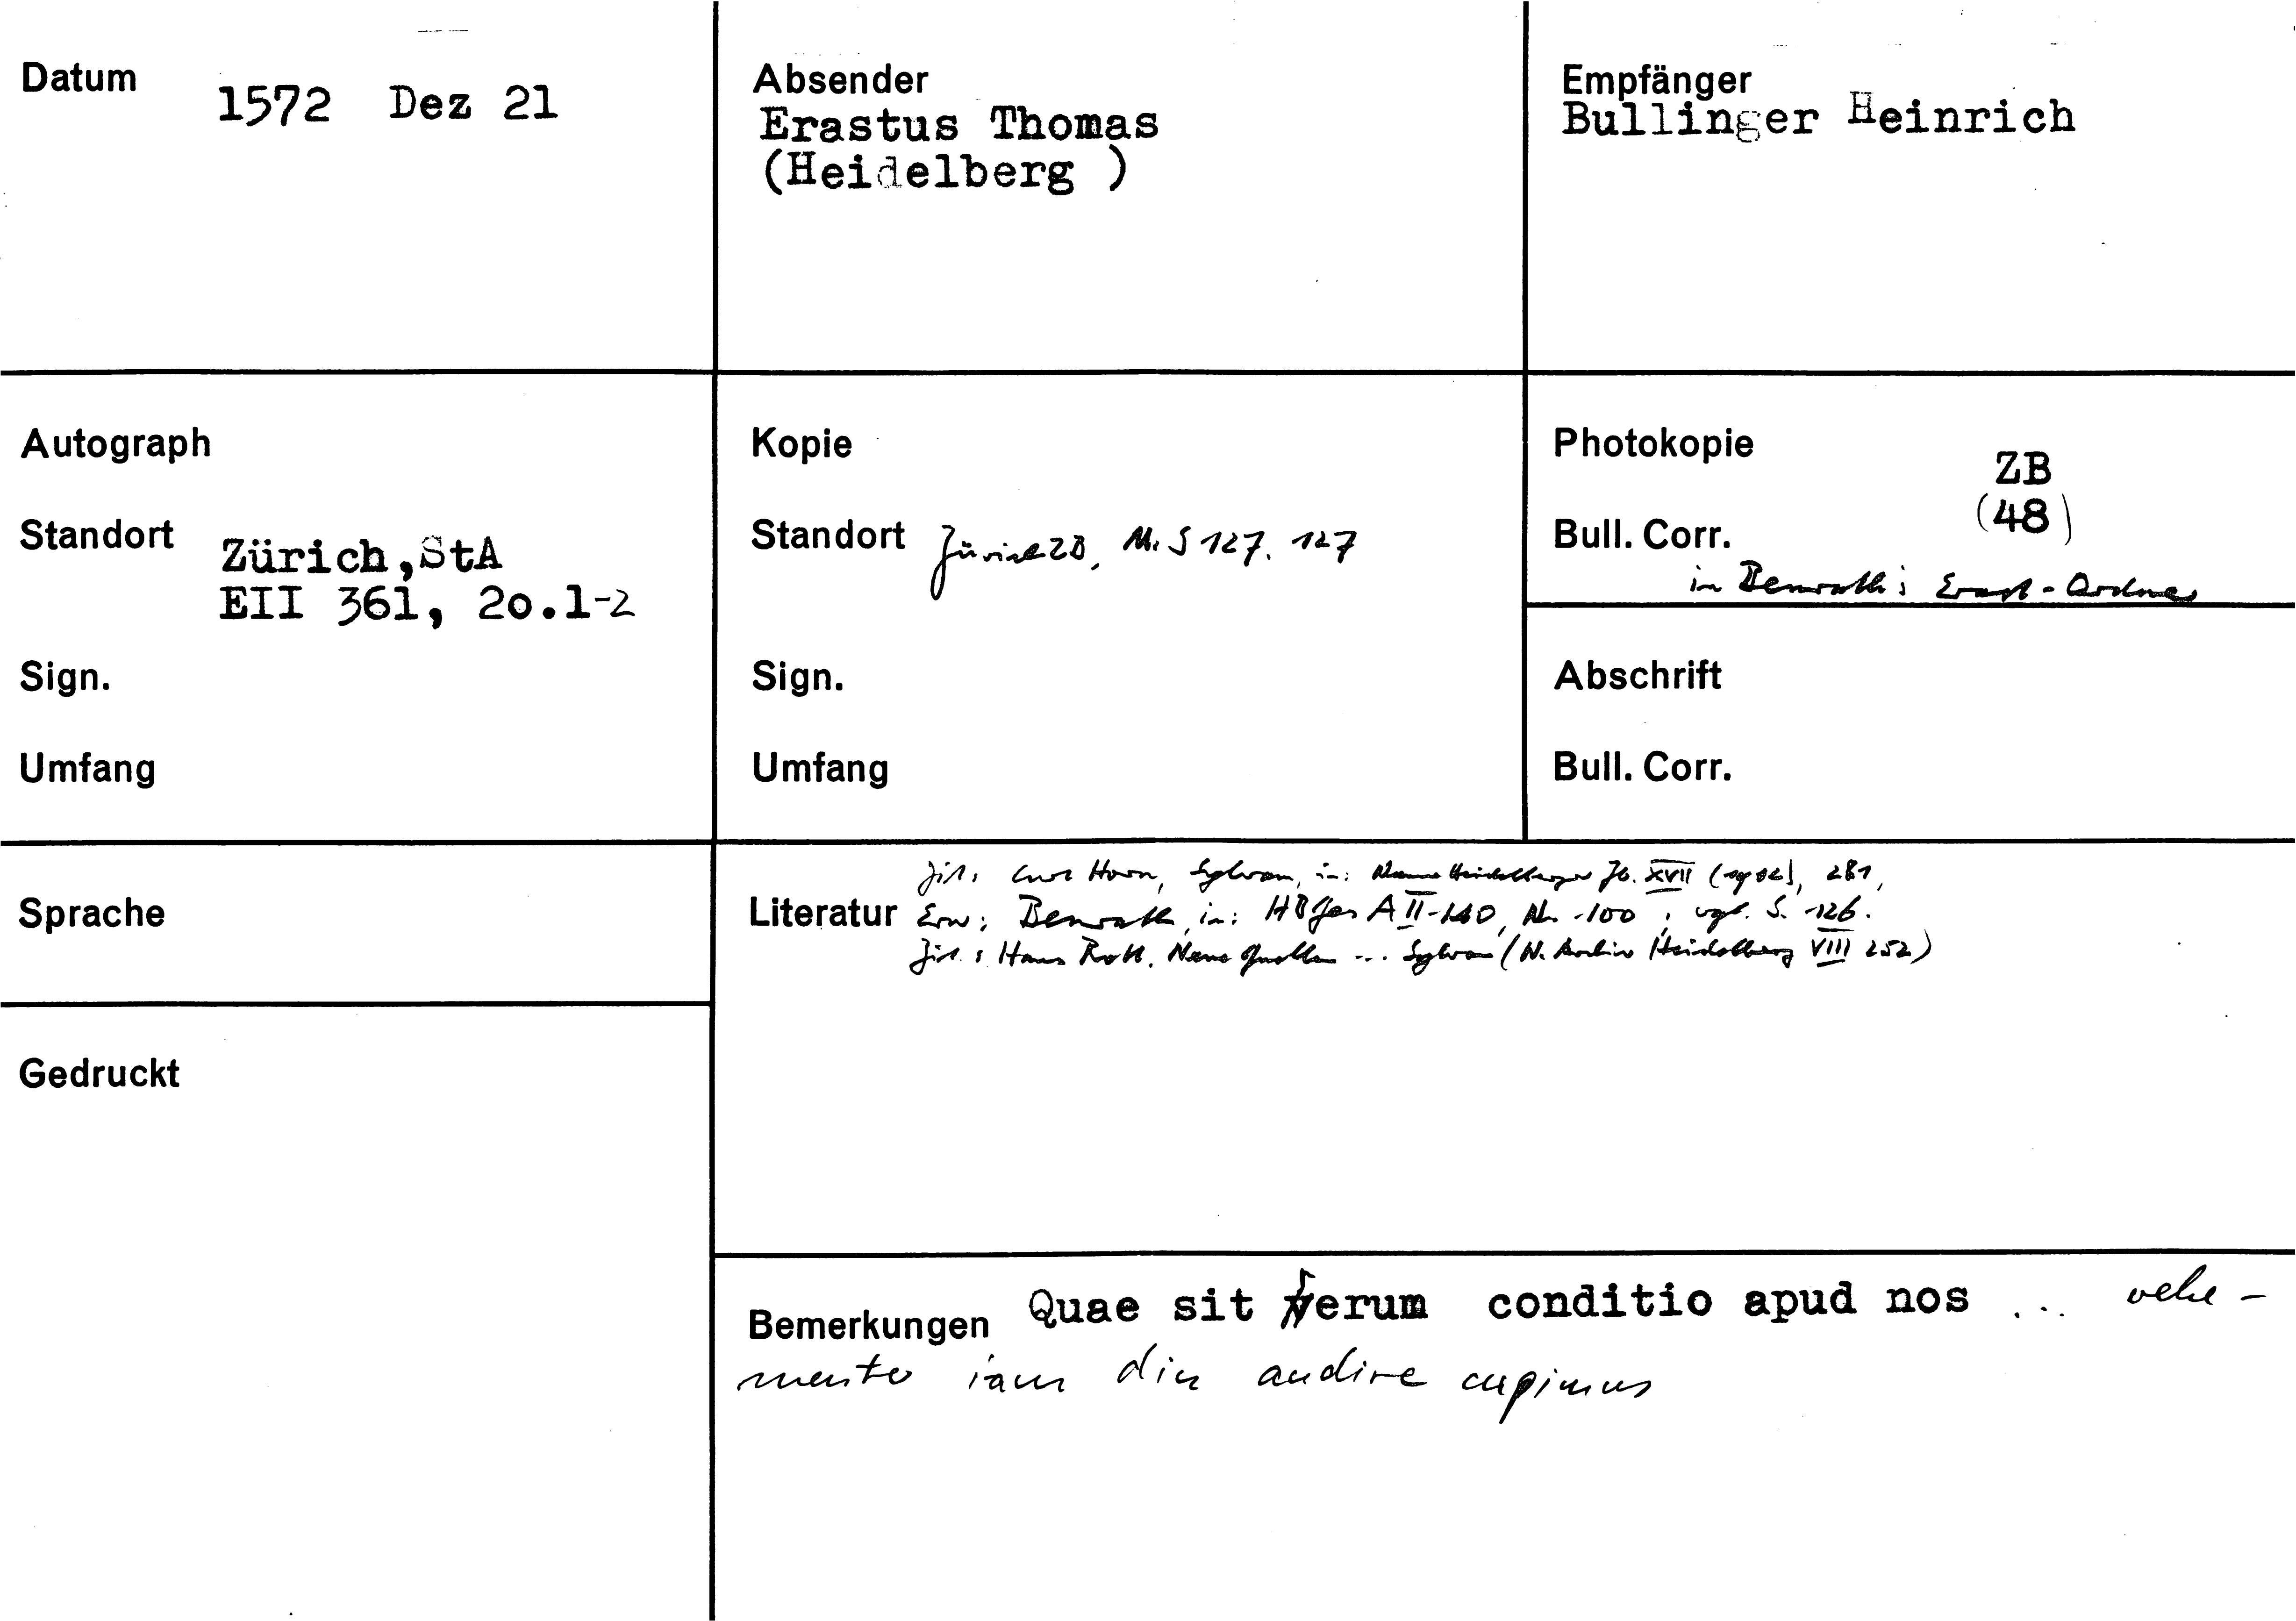 Datum
1572 Dez 21
Absender
Erastus Thomas
(Heidelberg )
Empfänger
Bullinger Heinrich
Autograph
Standort Zürich,StA
EII 361, 2o.1-2
Sign.
Umfang
Kopie
Standort Zürich ZB, Ms S 127. 127
Sign.
Umfang
Photokopie
ZB
(48)
Bull. Corr.
in Benrath's Erast-Ordner
Abschrift
Bull. Corr.
Sprache
Gedruckt
Literatur
Zit: Curt Horn, Sylvan, in: Neue Heidelberger Jb. XVII 281,
Erw: Benrath, in: A II-140, Nr. 100, vgl. S. 126.
Zit: Hans Rott, Neue Quellen ... Sylvan (N. Archiv Heidelberg VIII 252)
Bemerkungen Quae sit rerum conditio apud nos ... vehe-
menter iam diu audire cupimus